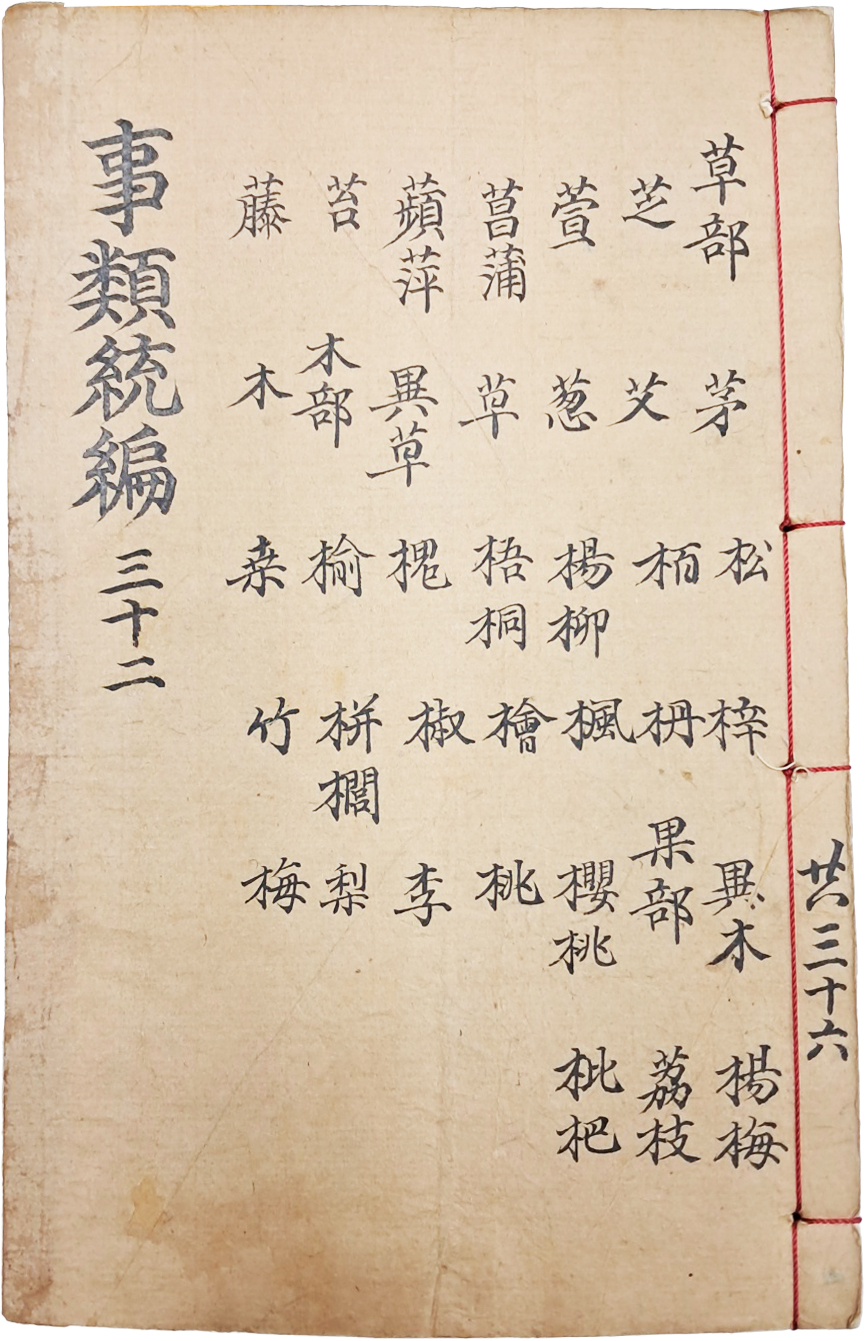 共三十六
草部
芝
萱
菖蒲
蘋萍
苔
藤
茅
艾
葱
草
異草
木部
木
松
栢
楊柳
梧桐
槐
榆
桒
梓
枬
楓
檜
椒
栟櫚
竹
異木
果部
櫻桃
桃
李
梨
梅
楊梅
荔枝
枇杷
事類統編 三十二